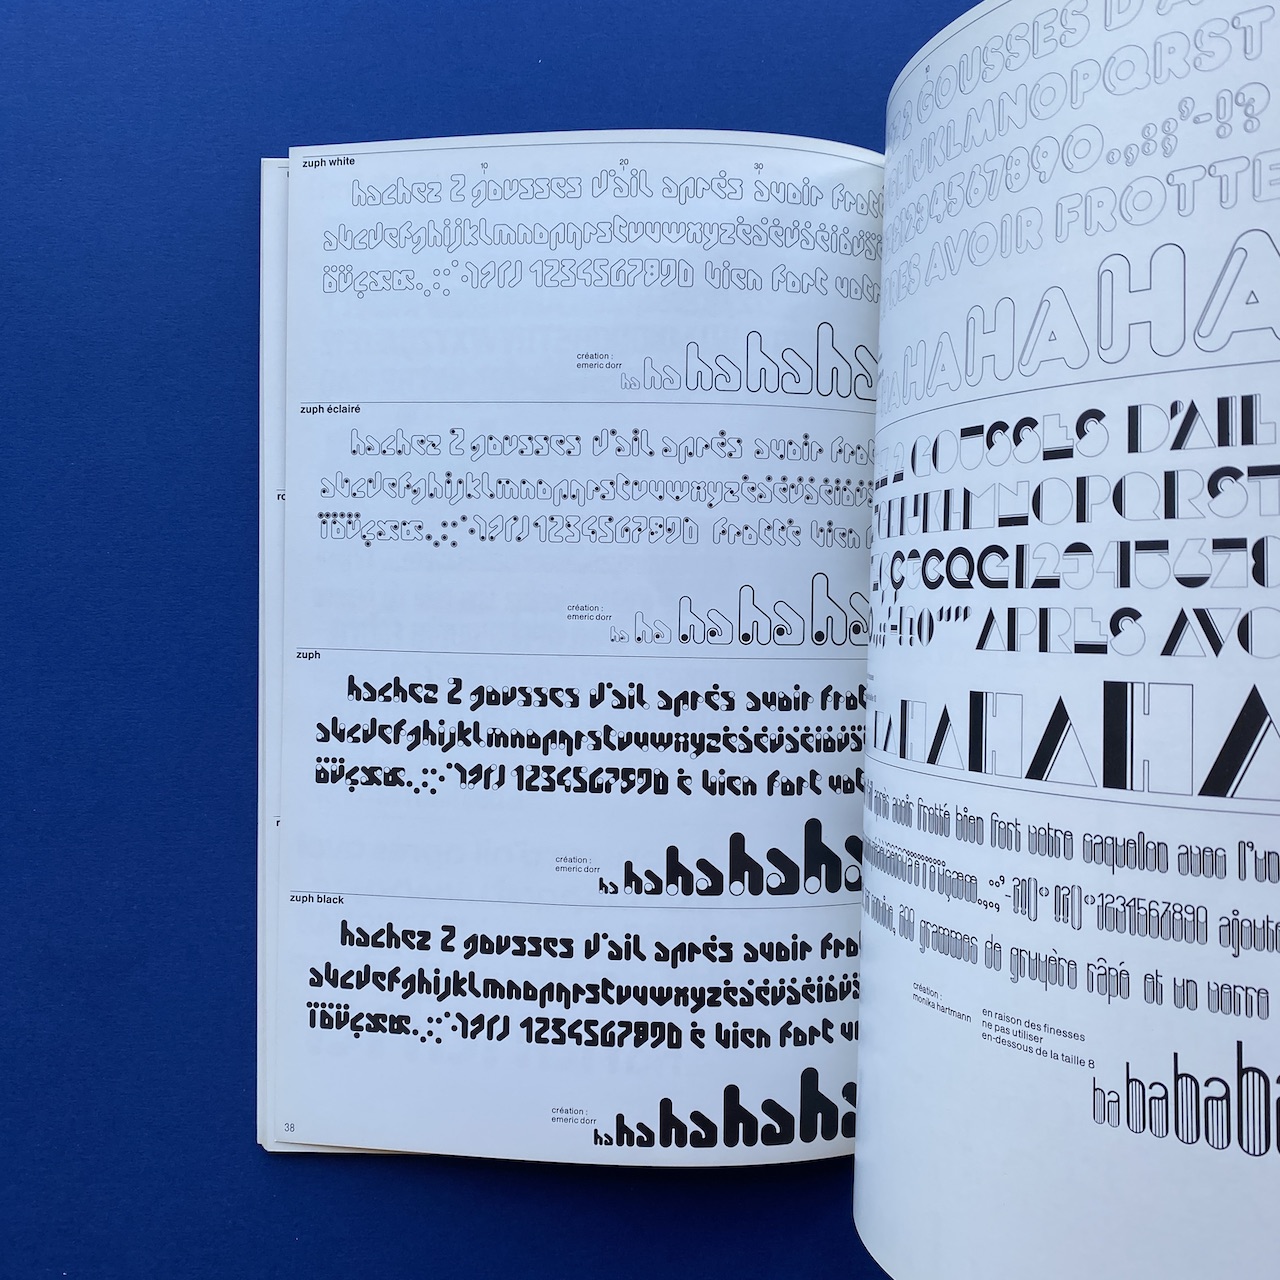 zuph white
10 20 30
hachez 2 gousses d'ail après avoir frotté
abcdefghijklmnopqrstuvwxyz
1234567890 bien fort votr
création :
emeric dorr
ha ha ha ha ha
zuph éclairé
hachez 2 gousses d'ail après avoir fro
abcdefghijklmnopqrstuvwxyz
1234567890 frotté bien
création :
emeric dorr
ha ha ha ha ha
zuph
hachez 2 gousses d'ail après avoir frot
abcdefghijklmnopqrstuvwxyz
1234567890 é bien fort vot
création :
emeric dorr
ha ha ha ha ha
zuph black
hachez 2 gousses d'ail après avoir frot
abcdefghijklmnopqrstuvwxyz
1234567890 é bien fort vot
création :
emeric dorr
ha ha ha ha ha
38
10
2 GOUSSES D'A
HIJKLMNOPQRST
1234567890.,;:'-!?
AVOIR FROTTE
HAHAHAHA
2 GOUSSES D'AIL
IJKLMNOPQRST
12345678
APRES AVO
HAHAHAHA
ail après avoir frotté bien fort votre caquelon avec l'un
1234567890 ajoute
200 grammes de gruyère râpé et un verre
création :
monika hartmann
en raison des finesses
ne pas utiliser
en-dessous de la taille 8
ha ha ha h